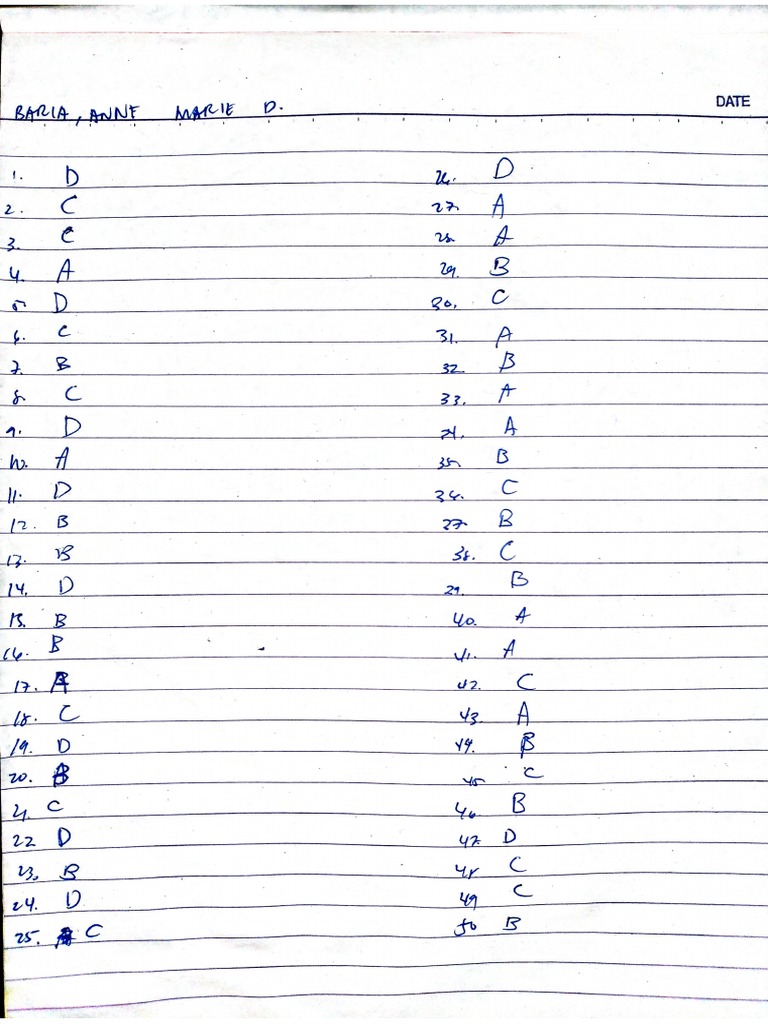 DATE
BARIA, ANNE MARIE D.
1. D
2. C
3. C
4. A
5. D
6. C
7. B
8. C
9. D
10. A
11. D
12. B
13. B
14. D
15. B
16. B
17. A
18. C
19. D
20. B
21. C
22 D
23, B
24. D
25. C
26. D
27. A
28. A
29. B
30. C
31. A
32. B
33. A
34. A
35. B
36. C
37. B
38. C
39. B
40. A
41. A
42. C
43. A
44. B
45 C
46 B
47. D
48 C
49 C
50 B